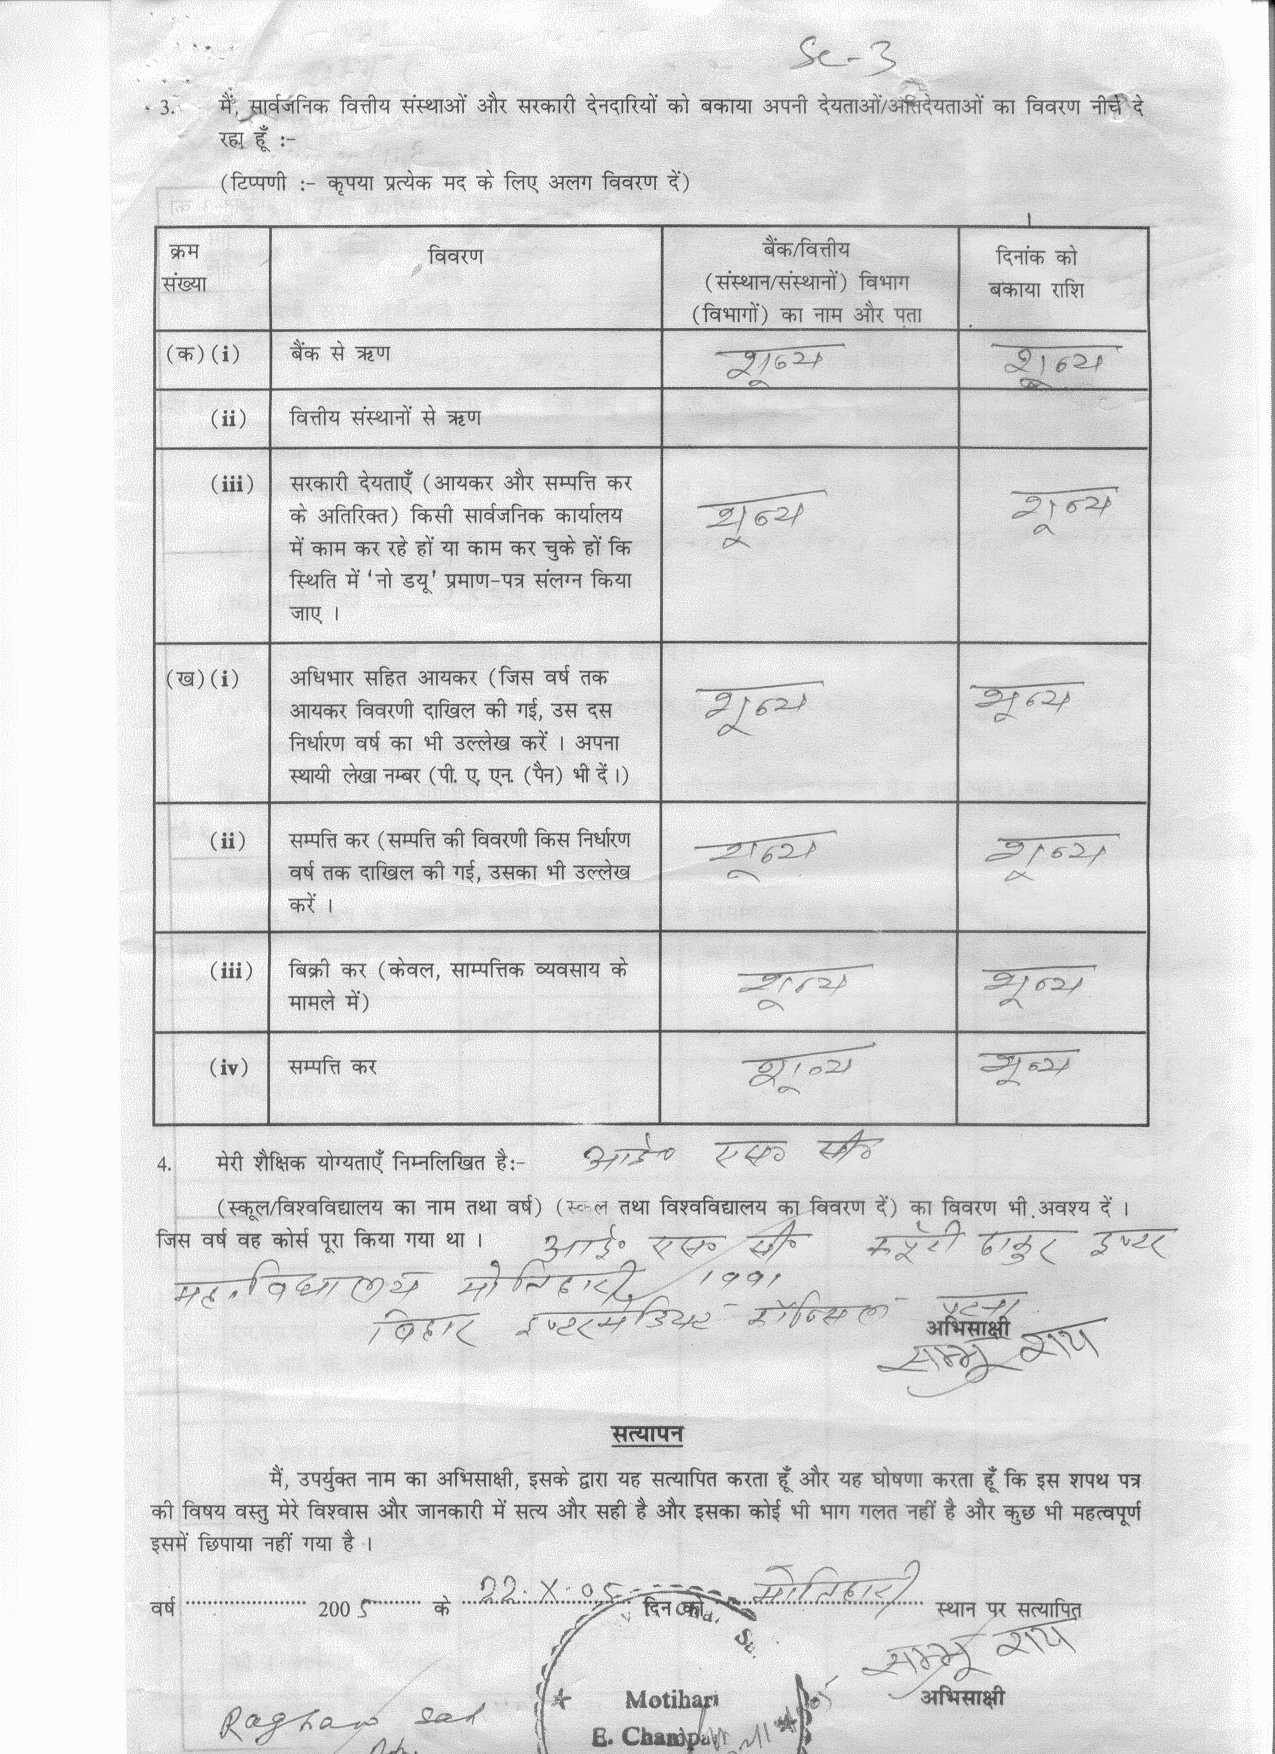 Sc-3
3. मैं, सार्वजनिक वित्तीय संस्थाओं और सरकारी देनदारियों को बकाया अपनी देयताओं/अतिदेयताओं का विवरण नीचे दे
रहा हूँ :-
(टिप्पणी :- कृपया प्रत्येक मद के लिए अलग विवरण दें)
क्रम संख्या विवरण बैंक/वित्तीय (संस्थान/संस्थानों) विभाग (विभागों) का नाम और पता दिनांक को बकाया राशि
(क)(i) बैंक से ऋण शून्य शून्य
(ii) वित्तीय संस्थानों से ऋण
(iii) सरकारी देयताएँ (आयकर और सम्पत्ति कर
के अतिरिक्त) किसी सार्वजनिक कार्यालय शून्य शून्य
में काम कर रहे हों या काम कर चुके हों कि
स्थिति में 'नो डयू' प्रमाण-पत्र संलग्न किया
जाए ।
(ख)(i) अधिभार सहित आयकर (जिस वर्ष तक
आयकर विवरणी दाखिल की गई, उस दस शून्य शून्य
निर्धारण वर्ष का भी उल्लेख करें । अपना
स्थायी लेखा नम्बर (पी. ए. एन. (पैन) भी दें।)
(ii) सम्पत्ति कर (सम्पत्ति की विवरणी किस निर्धारण शून्य शून्य
वर्ष तक दाखिल की गई, उसका भी उल्लेख
करें ।
(iii) बिक्री कर (केवल, साम्पत्तिक व्यवसाय के शून्य शून्य
मामले में)
(iv) सम्पत्ति कर शून्य शून्य
4. मेरी शैक्षिक योग्यताएँ निम्नलिखित है:- आई० एस० सी०
(स्कूल/विश्वविद्यालय का नाम तथा वर्ष) (स्कूल तथा विश्वविद्यालय का विवरण दें) का विवरण भी अवश्य दें ।
जिस वर्ष वह कोर्स पूरा किया गया था । आई० एस० सी० कर्पूरी ठाकुर इण्टर
महाविद्यालय मोतिहारी, १९९१
बिहार इण्टरमेडियट कौन्सिल पटना
अभिसाक्षी
शम्भू राय
सत्यापन
मैं, उपर्युक्त नाम का अभिसाक्षी, इसके द्वारा यह सत्यापित करता हूँ और यह घोषणा करता हूँ कि इस शपथ पत्र
की विषय वस्तु मेरे विश्वास और जानकारी में सत्य और सही है और इसका कोई भी भाग गलत नहीं है और कुछ भी महत्वपूर्ण
इसमें छिपाया नहीं गया है ।
वर्ष .................... 2005 .......... के 22.X.05 दिन को मोतिहारी स्थान पर सत्यापित
शम्भू राय
अभिसाक्षी
Motihari
E. Champa
Raghaw